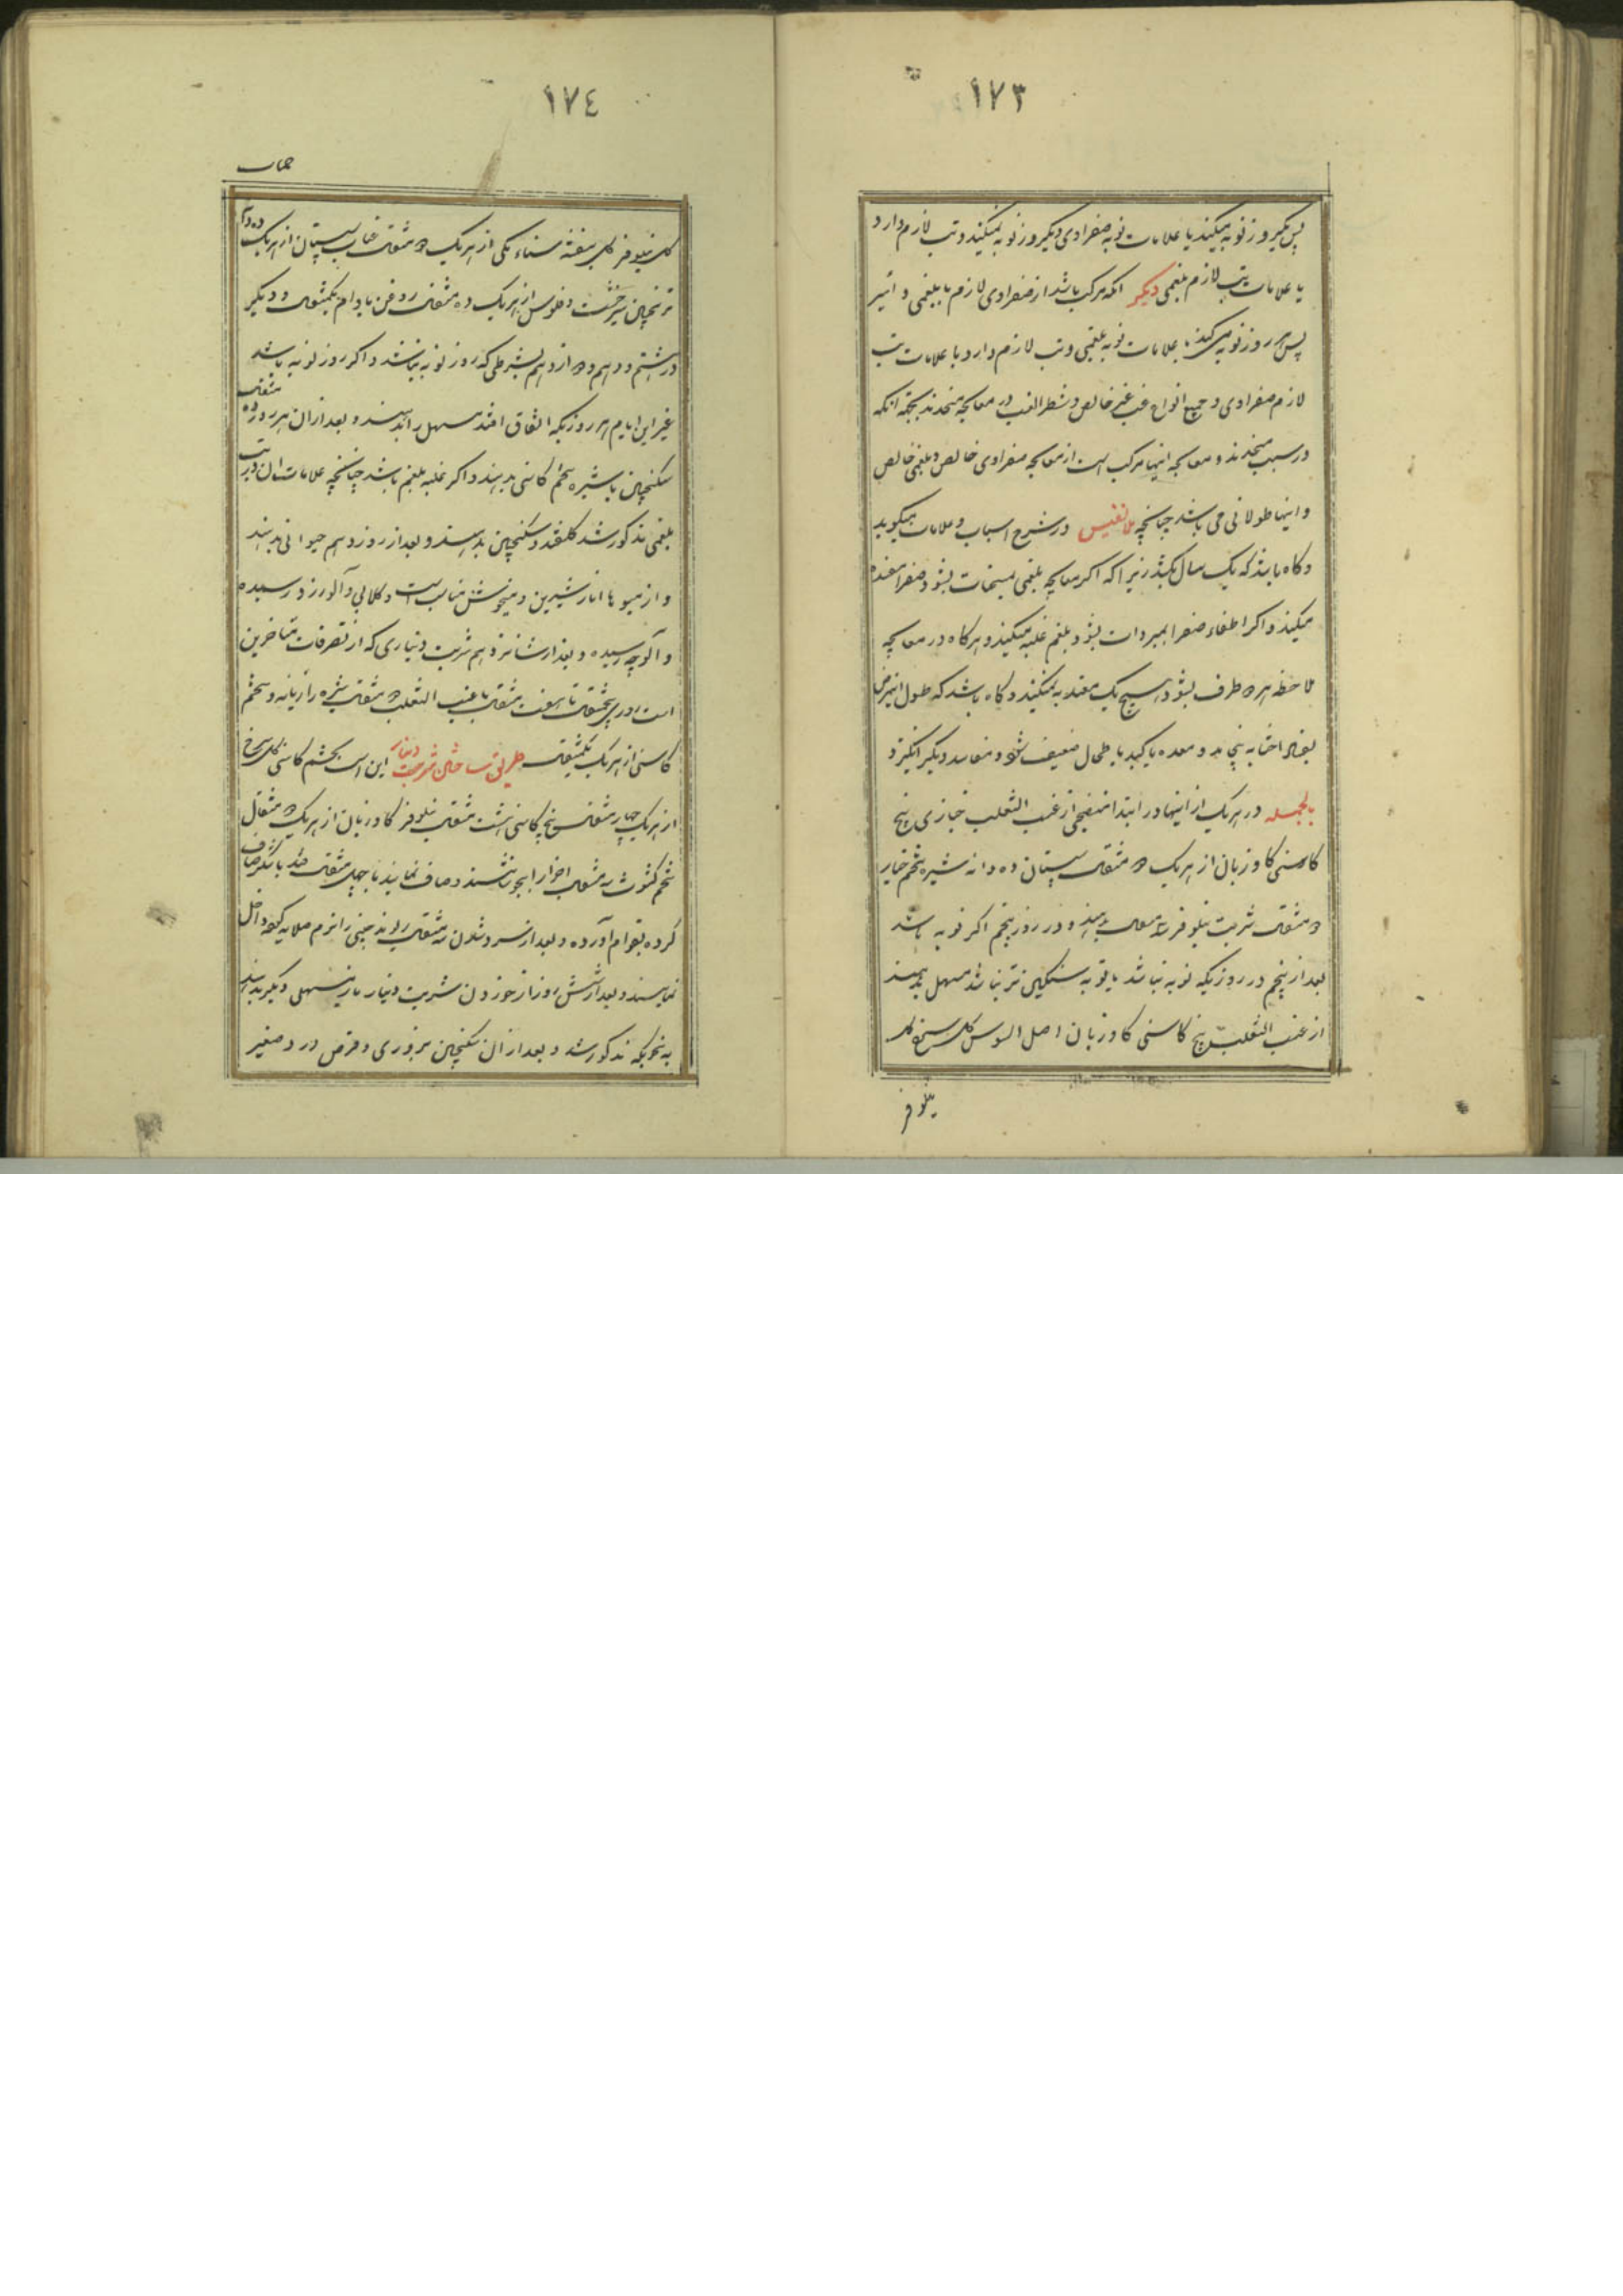 ١٧٣
پس یکروز نوبه میکند با علامات نوبه صفراوی و یکروز نوبه نمیکند و تب لازم دارد
با علامات تب لازم بلغمی دیگر آنکه مرکب باشد از صفراوی لازم با بلغمی دائر
پس هر روز نوبه می کند با علامات نوبه بلغمی و تب لازم دارد با علامات تب
لازم صفراوی و جمیع انواع غب غیر خالص و شطر الغب در معالجه متحدند بجهة آنکه
در سبب متحدند و معالجه اینها مرکب است از معالجه صفراوی خالص و بلغمی خالص
و اینها طولانی می باشد چنانچه ملا نفیس در شرح اسباب و علامات میگوید
و گاه باشد که یک سال بکشد زیرا که اگر معالجه بلغمی بمسخنات بشود صفرا
میکند و اگر اطفاء صفرا بمبردات بشود بلغم غلبه میکند و هر گاه در معالجه
ملاحظه هر دو طرف بشود هیچ یک معتد به نمیکند و گاه باشد که طول
و معده یا کبد یا طحال ضعیف شود و مفاسد دیگر انگیزد
بالجمله در هر یک از اینها در ابتدا منضجی از عنب الثعلب خبازی بیخ
کاسنی گاو زبان از هر یک دو مثقال سپستان ده دانه شیره تخم خیار
دو مثقال شربت نیلوفر بدهند و در روز پنجم اگر نوبه باشد
بعد از پنجم در روزیکه نوبه نباشد یا نوبه سنگین تر نباشد مسهل بدهند
از عنب الثعلب بیخ کاسنی گاو زبان اصل السوس گل سرخ گل
نیلوفر
١٧٤
گل نیلوفر گل بنفشه سناء مکی از هر یک دو مثقال عناب سپستان از هر یک ده دانه
ترنجبین شیرخشت و فلوس از هر یک ده مثقال روغن بادام یکمثقال و دیگر
در هشتم و دهم و دوازدهم بشرطی که روز نوبه نباشد و اگر روز نوبه باشد
غیر این ایام هر روزیکه اتفاق افتد مسهل را بدهند و بعد از آن هر روز ده مثقال
سکنجبین با شیره تخم کاسنی بدهند و اگر غلبه بلغم باشد چنانچه علامات آن در تب
بلغمی مذکور شد گلقند و سکنجبین بدهند و بعد از روز دهم
و از میوها انار شیرین و میخوش مناسبست و گلابی و آلو زرد رسیده
و آلوچه رسیده و بعد از شانزدهم شربت دیناری که از تصرفات متأخرین
است از پنجمثقال تا هفت مثقال با عنب الثعلب دو مثقال شیره رازیانه و تخم
کاسنی از هر یک یکمثقال طریق ساختن شربت دینار این است تخم کاسنی گل سرخ
از هر یک چهار مثقال بیخ کاسنی هشت مثقال نیلوفر گاو زبان از هر یک دو مثقال
تخم کشوث سه مثقال اجزا را بجوشانند و صاف نمایند با چهل مثقال قند یا شکر صاف
کرده بقوام آورده و بعد از سرد شدن سه مثقال ریوند چینی را نرم صلایه کرده داخل
نمایند و بعد از شش روز از خوردن شربت دینار باز مسهلی دیگر بدهند
به نحویکه مذکور شد و بعد از آن سکنجبین بزوری و قرص ورد صغیر